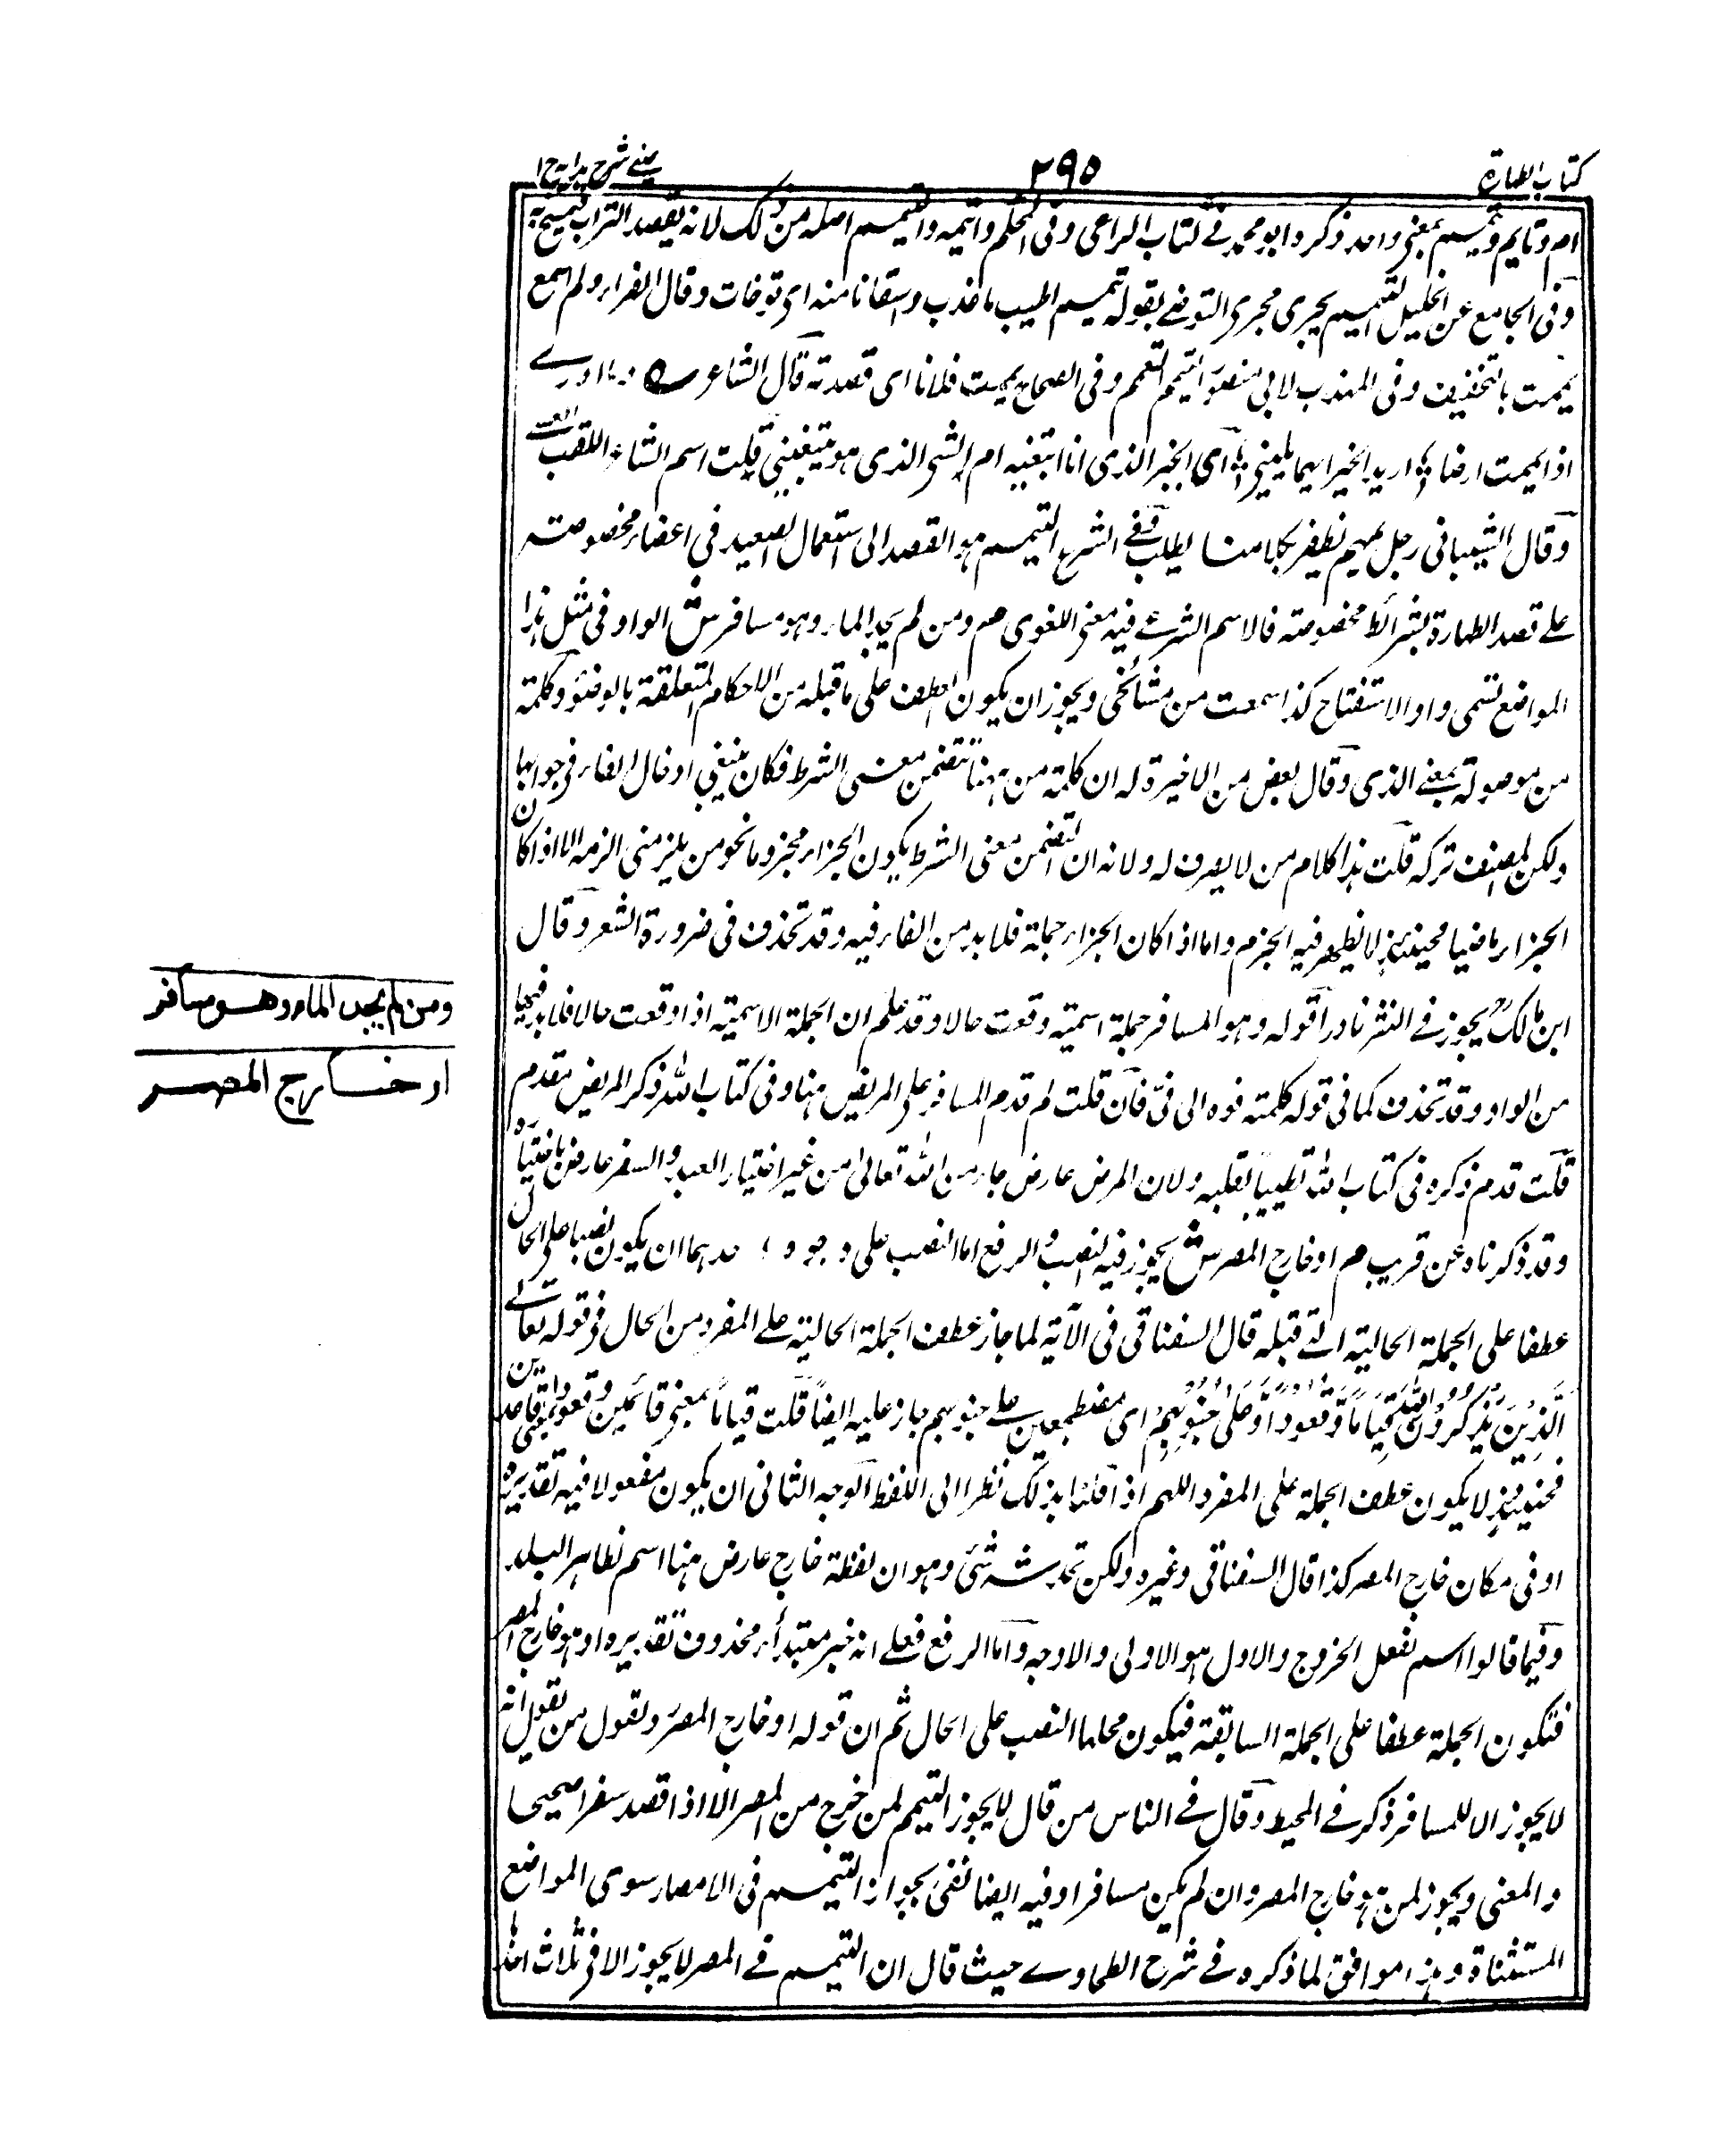 كتاب الطهارة
٢٩٥
عينى شرح هدايه ج ١
ام وتايم وتيمم بمعنى واحد ذكره ابو محمد فى كتاب الراعى وفى المحكم واتيمه والتيمم اصله من ذلك لانه يقصد التراب فيمسح به
وفى الجامع عن الخليل التيمم يجرى مجرى التوضى بقوله تيمم اطيب ما عندك واسقانا منه اى توضات وقال الفراء ولم اسمع
يممت بالتخفيف وفى المهذب لابى منصور التيمم التعمم وفى الصحاح يممت فلانا اى قصدته قال الشاعر ه وما ادرى
اذا يممت ارضا ۞ اريد الخير ايهما يلينى ۞ اى الخير الذى انا ابتغيه ام الشر الذى هو يبتغينى قلت اسم الشاعر المثقب العبدى
وقال الشيبانى رجل ميمم يظفر بكل ما يطلب وفى الشرع التيمم هو القصد الى استعمال الصعيد فى اعضاء مخصوصته
على قصد الطهارة بشرائط مخصوصته فالاسم الشرعى فيه معنى اللغوى م ومن لم يجد الماء وهو مسافر ش الواو فى مثل هذا
المواضع تسمى واو الاستفتاح كذا سمعت من مشائخى ويجوز ان يكون العطف على ما قبله من الاحكام المتعلقة بالوضوء وكلمته
من موصولة بمعنى الذى وقال بعض من لا خيرة له ان كلمة من ههنا تتضمن معنى الشرط فكان ينبغى ادخال الفاء فى جوابها
ولكن المصنف تركه قلت هذا كلام من لا يعرف له ولانه ان التضمن معنى الشرط يكون الجزاء مجزوما نحو من يلزمنى الزمه الا اذا كان
الجزاء ماضيا فحينئذ لا يظهر فيه الجزم واما اذا كان الجزاء جملة فلا بد من الفاء فيه وقد تحذف فى ضرورة الشعر وقال
ابن مالك رح يجوز فى النثر نادرا قوله وهو المسافر جملة اسمية وقعت حالا وقد علم ان الجملة الاسمية اذا وقعت حالا فلا بد فيها
من الواو وقد تحذف كما فى قوله كلمته فوه الى فىّ فان قلت لم قدم المسافر على المريض هنا وفى كتاب الله ذكر المريض مقدم
قلت قدم ذكره فى كتاب الله تطييبا لقلبه ولان المرض عارض جاء من الله تعالى من غير اختيار العبد والسفر عارض باختياره
وقد ذكرناه عن قريب م او خارج المصر ش يجوز فيه النصب والرفع اما النصب على وجوه احدهما ان يكون نصبا على الحال
عطفا على الجملة الحالية التى قبله قال السغناقى فى الآية لما جاز عطف الجملة الحالية على المفرد من الحال فى قوله تعالى
الَّذِيْنَ يَذْكُرُوْنَ اللهَ قِيَامًا وَّقُعُوْدًا وَّعَلٰى جُنُوْبِهِمْ اى مضطجعين على جنوبهم جاز عليه ايضا قلت قياما بمعنى قائمين وقعودا بمعنى قاعدين
فحينئذ لا يكون عطف الجملة على المفرد اللهم اذا قلنا بذلك نظرا الى اللفظ الوجه الثانى ان يكون مفعولا فيه تقديره
او فى مكان خارج المصر كذا قال السغناقى وغيره ولكن تحدشه شئ وهو ان لفظة خارج عارض هنا اسم لظاهر البلد
وفيما قالوا اسم لفعل الخروج والاول هو الاولى والاوجه واما الرفع فعلى انه خبر مبتدأ محذوف تقديره او هو خارج المصر
فتكون الجملة عطفا على الجملة السابقة فيكون محلها النصب على الحال ثم ان قوله او خارج المصر ولقول من يقول انه
لا يجوز الا للمسافر ذكر فى المحيط وقال فى الناس من قال لا يجوز التيمم لمن خرج من المصر الا اذا قصد سفرا صحيحا
والمعنى ويجوز لمن هو خارج المصر وان لم يكن مسافرا وفيه ايضا نفى بجواز التيمم فى الامصار سوى المواضع
المستثناة وهذا موافق لما ذكره فى شرح الطحاوى حيث قال ان التيمم فى المصر لا يجوز الا فى ثلاث احدها
ومن لم يجد الماء وهو مسافر
او خارج المصر